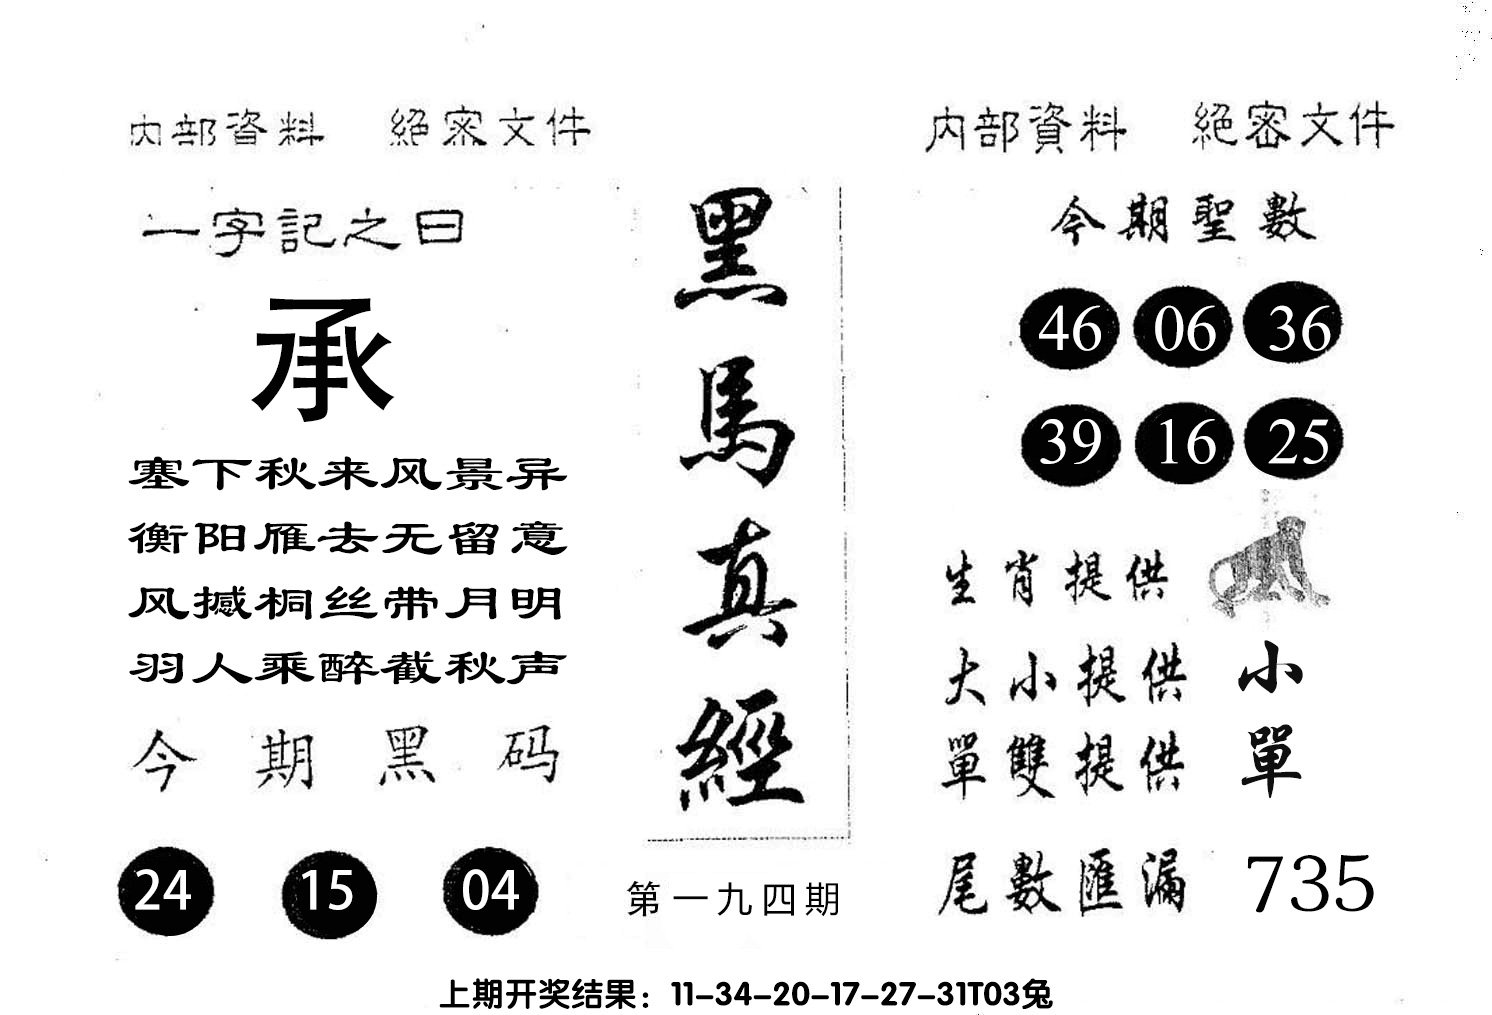 内部資料 絕密文件
一字記之曰
承
塞下秋来风景异
衡阳雁去无留意
风撼桐丝带月明
羽人乘醉截秋声
今期黑码
24 15 04
黑馬真經
第一九四期
内部資料 絕密文件
今期聖數
46 06 36
39 16 25
生肖提供
大小提供 小
單雙提供 單
尾數匯漏 735
上期开奖结果：11-34-20-17-27-31T03兔